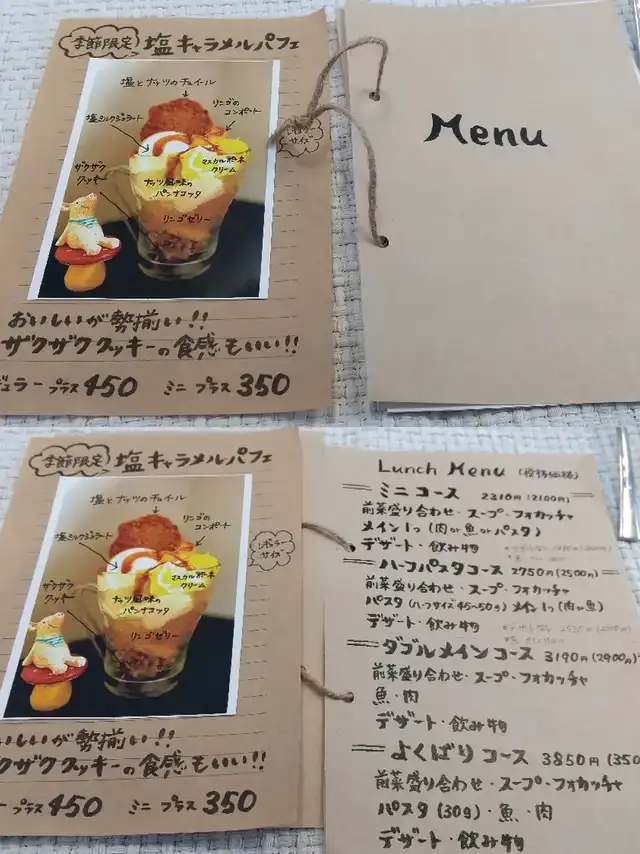 季節限定 塩キャラメルパフェ
塩とナッツのチュイール
リンゴの
コンポート
塩ミルクジェラート
マスカルポーネ
クリーム
ザクザク
クッキー
ナッツ風味の
パンナコッタ
リンゴゼリー
サイズ
おいしいが勢揃い!!
ザクザククッキーの食感もいい!!
ュラー プラス450 ミニ プラス350
Menu
季節限定 塩キャラメルパフェ
塩とナッツのチュイール
リンゴの
コンポート
塩ミルクジェラート
マスカルポーネ
クリーム
ザクザク
クッキー
ナッツ風味の
パンナコッタ
リンゴゼリー
レギュラー
サイズ
いしいが勢揃い!!
クザククッキーの食感もいい!!
ー プラス450 ミニ プラス350
Lunch Menu (税抜価格)
ミニコース 2310円(2100円)
前菜盛り合わせ・スープ・フォカッチャ
メイン1つ(肉or魚orパスタ)
デザート・飲み物
ハーフパスタコース 2750円(2500円)
前菜盛り合わせ・スープ・フォカッチャ
パスタ(ハーフサイズ45~50g) メイン1つ(肉or魚)
デザート・飲み物
ダブルメインコース 3190円(2900円)
前菜盛り合わせ・スープ・フォカッチャ
魚・肉
デザート・飲み物
よくばりコース 3850円(350
前菜盛り合わせ・スープ・フォカッチャ
パスタ(30g)・魚・肉
デザート・飲み物